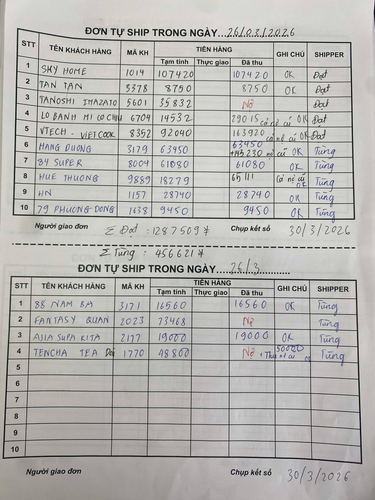 ĐƠN TỰ SHIP TRONG NGÀY...26/03/2026
STT TÊN KHÁCH HÀNG MÃ KH TIỀN HÀNG GHI CHÚ SHIPPER
Tạm tính Thực giao Đã thu
1 SKY HOME 1014 107420 107420 OK Đạt
2 TAN TAN 5378 8750 8750 OK Đạt
3 TANOSHI IMAZATO 5601 35832 Nợ Đạt
4 LO BANH MI CO CHU 6704 14532 29015 có nợ cũ OK Đạt
5 VTECH - VIETCOOK 8352 92040 163920 có nợ cũ OK Đạt
6 HANG DUONG 3179 63450 63450 +145230 nợ cũ OK Tùng
7 84 SUPER 8004 61080 61080 OK Tùng
8 HUE THUONG 9889 18279 65111 Có nợ cũ OK Tùng
9 HN 1157 28740 28740 OK Tùng
10 79 PHUONG DONG 1638 9450 9450 OK Tùng
Người giao đơn Σ Đạt: 1287509 ¥ Chụp kết sổ 30/3/2026
Σ Tùng: 456621 ¥
ĐƠN TỰ SHIP TRONG NGÀY.....26/3..........
STT TÊN KHÁCH HÀNG MÃ KH TIỀN HÀNG GHI CHÚ SHIPPER
Tạm tính Thực giao Đã thu
1 88 NAM BA 3171 16560 16560 OK Tùng
2 FANTASY QUAN 2023 73468 Nợ Tùng
3 ASIA SUPA KITA 2177 19000 19000 OK Tùng
4 TENCHA TEA 1770 48800 Nợ + Thu nợ cũ 50000 OK Tùng
5
6
7
8
9
10
Người giao đơn Chụp kết sổ 30/3/2026